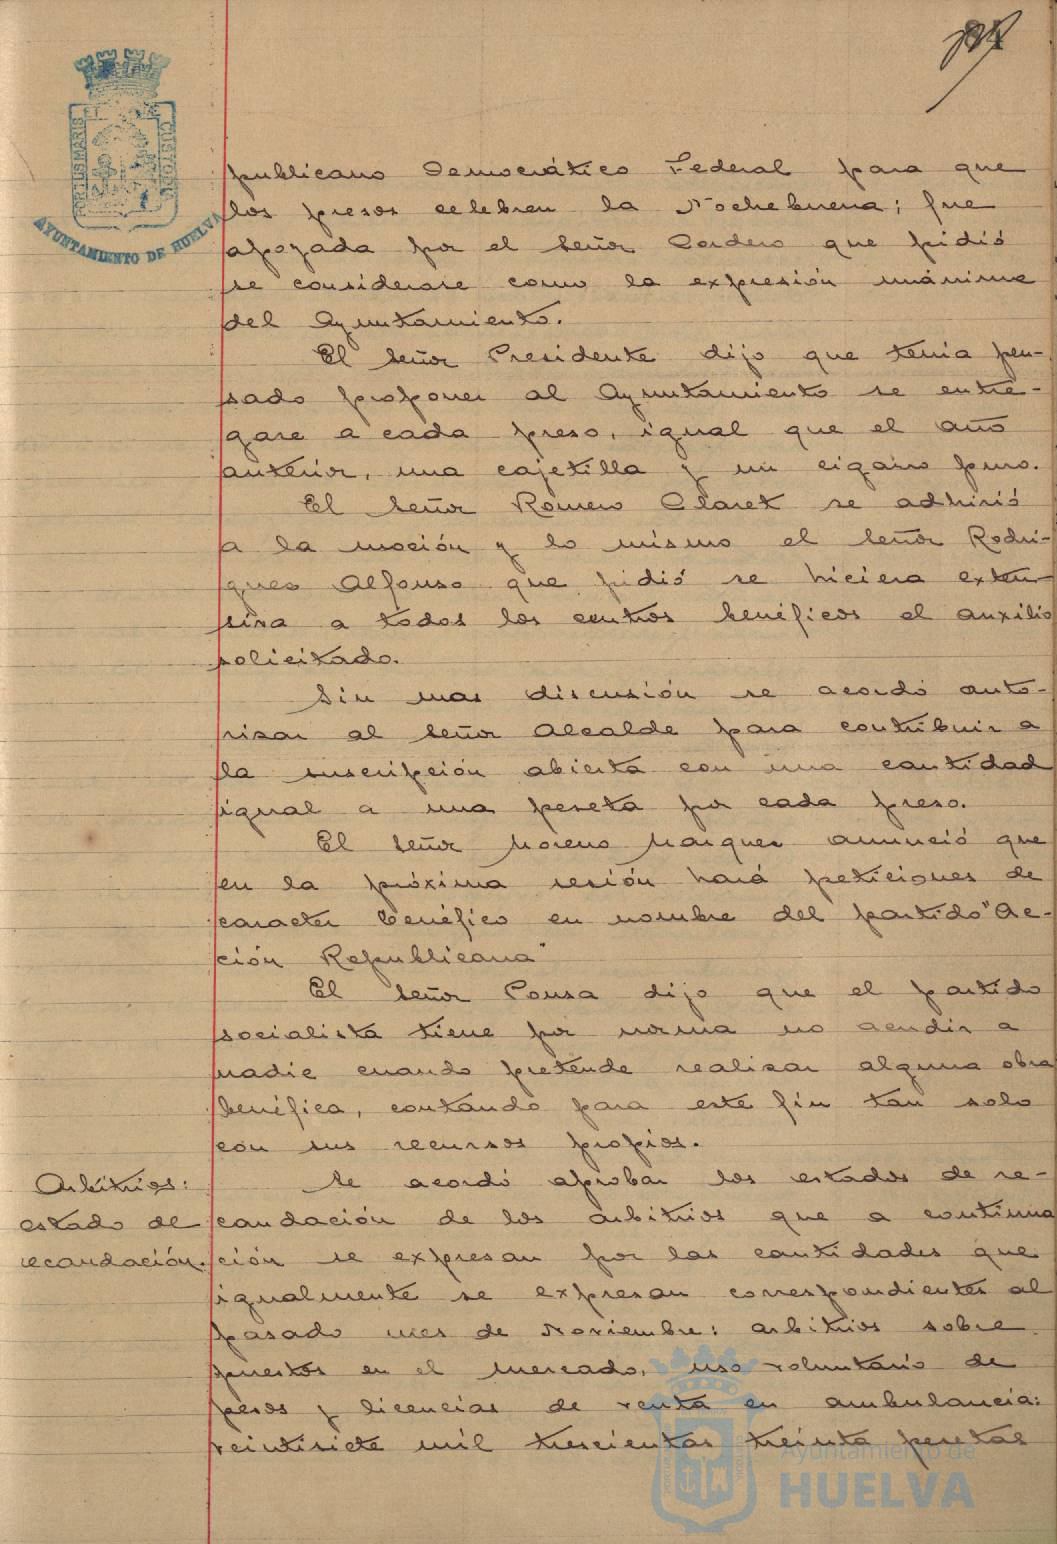 PORTUS MARIS ET
CUSTODIA
AYUNTAMIENTO DE HUELVA
publicano Democrático Federal para que
los presos celebren la Nochebuena; fue
apoyada por el Señor Cordero que pidió
se considerase como la expresión unánime
del Ayuntamiento.
El Señor Presidente dijo que tenia pen-
sado proponer al Ayuntamiento se entre-
gase a cada preso, igual que el año
anterior, una cajetilla y un cigarro puro.
El Señor Romero Claret se adhirió
a la moción y lo mismo el Señor Rodri-
guez Alfonso que pidió se hiciera exten-
siva a todos los centros benéficos el auxilio
solicitado.
Sin mas discusión se acordó auto-
rizar al Señor Alcalde para contribuir a
la suscripción abierta con una cantidad
igual a una peseta por cada preso.
El Señor Moreno Marquez anunció que
en la próxima sesión hará peticiones de
caracter benéfico en nombre del partido "Ac-
ción Republicana"
El Señor Ponsa dijo que el partido
socialista tiene por norma no acudir a
nadie cuando pretende realizar alguna obra
benéfica, contando para este fin tan solo
con sus recursos propios.
Arbitrios:
estado de
recaudación.
Se acordó aprobar los estados de re-
caudación de los arbitrios que a continua
ción se expresan por las cantidades que
igualmente se expresan correspondientes al
pasado mes de Noviembre: arbitrios sobre
puestos en el mercado, uso voluntario de
pesos y licencias de venta en ambulancia:
veintisiete mil trescientas treinta pesetas
Ayuntamiento de
HUELVA